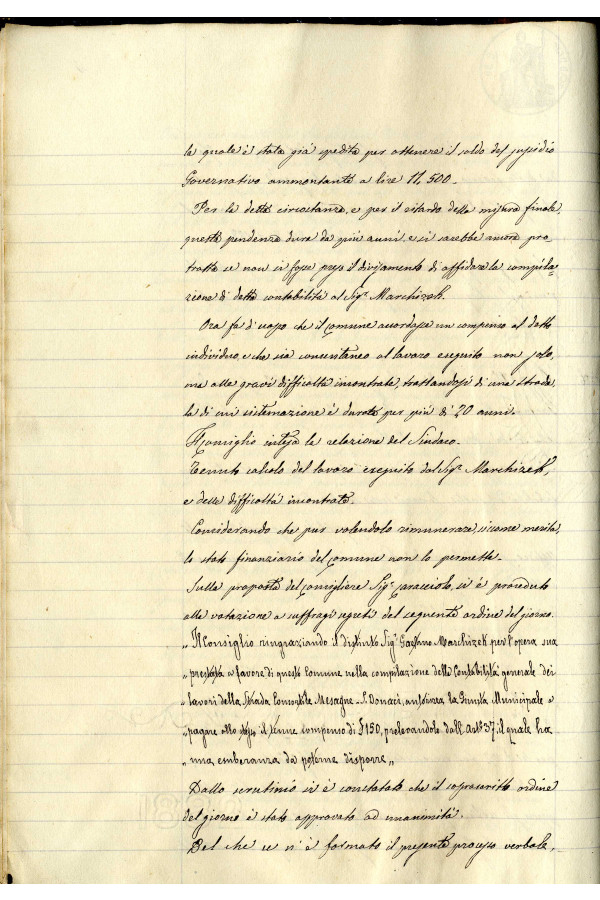 la quale è stata già spedita per ottenere il saldo del sussidio
Governativo ammontante a lire 11,500.
Per le dette circostanze, e per il ritardo della misura finale,
questa pendenza dura da più anni e si sarebbe ancora pro
tratta se non si fosse preso il divisamento di affidare la compila=
zione di detta contabilità al Sig.r Marchizek.
Ora fa d'uopo che il Comune accordasse un compenso al detto
individuo, e che sia consentaneo al lavoro eseguito non solo,
ma alle gravi difficoltà incontrate, trattandosi di una strada,
la di cui sistemazione è durata per più di 20 anni.
Il Consiglio intesa la relazione del Sindaco.
Tenuto calcolo del lavoro eseguito dal Sig.r Marchizek,
e delle difficoltà incontrate.
Considerando che pur volendolo rimunerare, siccome merita,
lo stato finanziario del Comune non lo permette.
Sulla proposta del Consigliere Sig.r Caracciolo, si è proceduto
alla votazione a suffragi segreti del seguente ordine del giorno.
„ Il Consiglio ringraziando il distinto Sig.r Gaetano Marchizek per l'opera sua
„ prestata a favore di questo Comune nella compilazione della Contabilità generale dei
„ lavori della Strada Consortile Mesagne - S. Donaci, autorizza la Giunta Municipale a
„ pagare allo il tenue compenso di £150, prelevandolo dall'Art.° 37, il quale ha
„ una emberanza da poterne disporre „
Dallo scrutinio si è constatato che il soprascritto ordine
del giorno è stato approvato ad unanimità.
Del che se n'è formato il presente processo verbale,